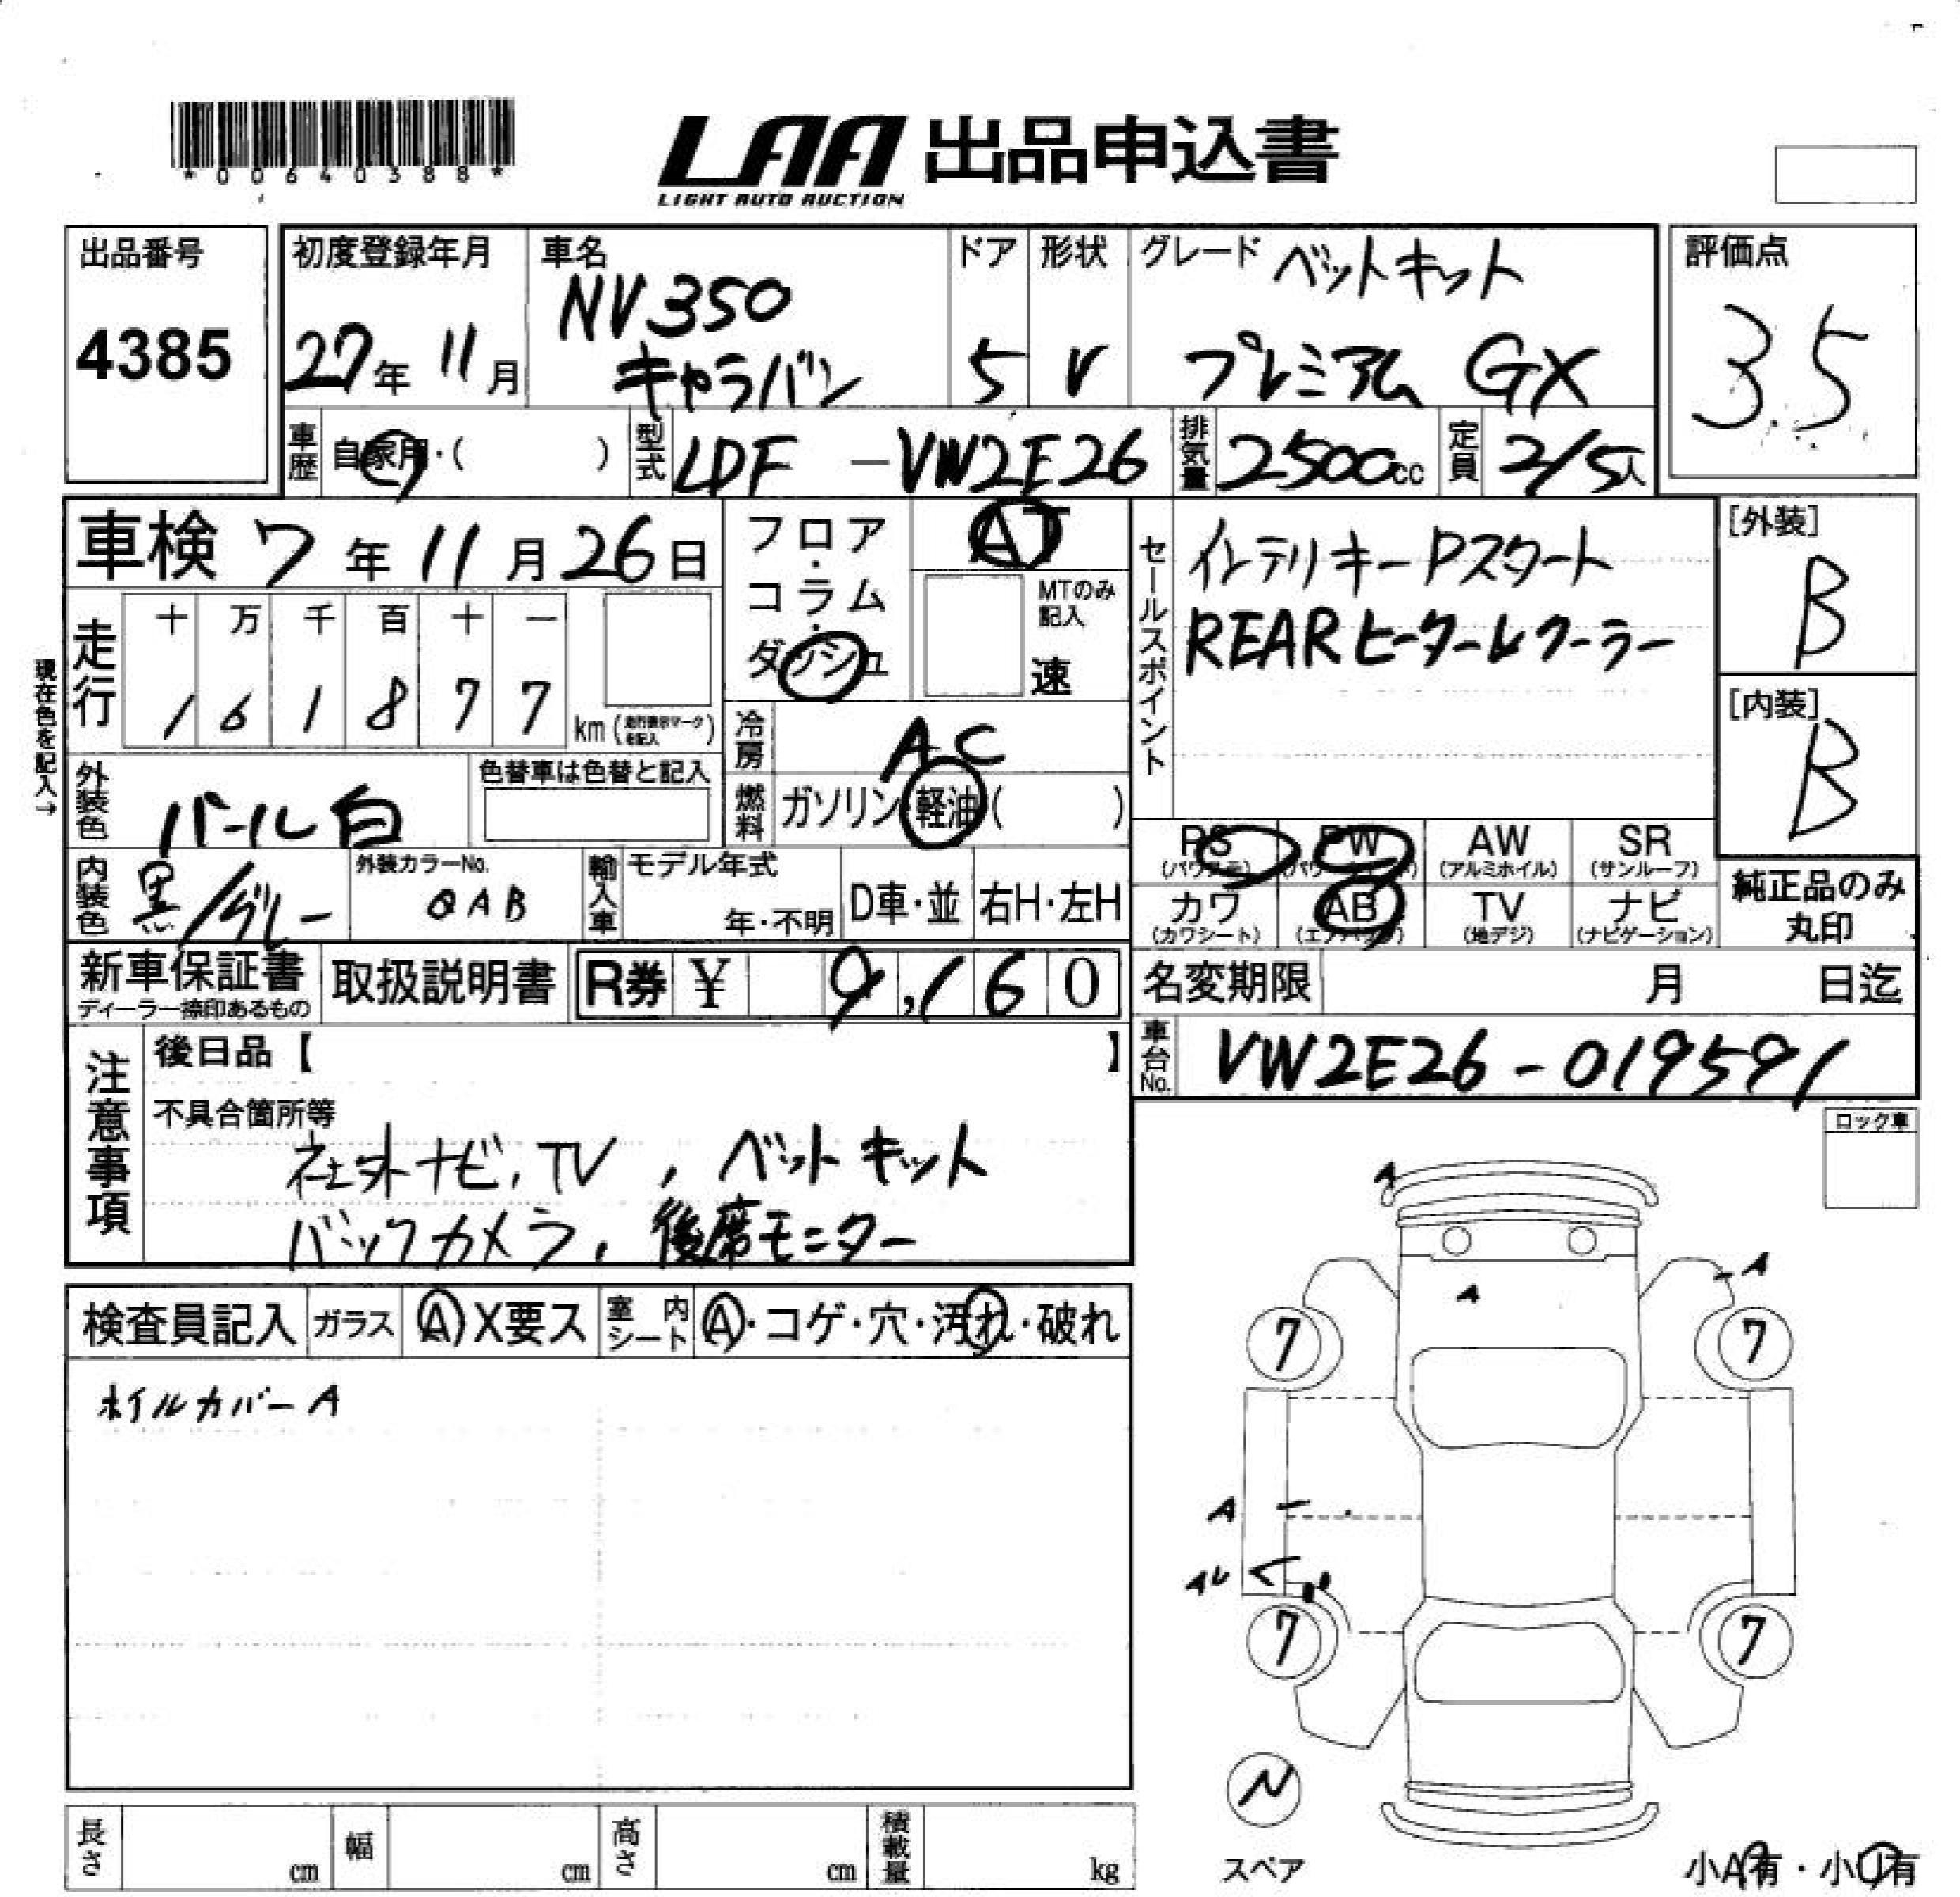 *00640388*
LAA 出品申込書
LIGHT AUTO AUCTION
出品番号
4385
初度登録年月
27年 11月
車名
NV350
キャラバン
ドア
5
形状
V
グレード ベットキット
プレミアム GX
評価点
3.5
車歴 自家用・( )
型式 LDF -VW2E26
排気量 2500cc
定員 2/5人
車検 7年 11月 26日
フロア・コラム・ダッシュ
AT
MTのみ記入
速
セールスポイント
インテリキー Pスタート
REARヒーター クーラー
[外装]
B
[内装]
B
現在色を記入→
走行
十 万 千 百 十 一
1 6 1 8 7 7
km (走行表示マークを記入)
冷房 AC
燃料 ガソリン・軽油( )
外装色 パール白
色替車は色替と記入
内装色 黒/グレー
外装カラーNo.
QAB
輸入車 モデル年式
年・不明
D車・並
右H・左H
PS (パワステ)
PW
AW (アルミホイル)
SR (サンルーフ)
カワ (カワシート)
AB (エアバッグ)
TV (地デジ)
ナビ (ナビゲーション)
純正品のみ
丸印
新車保証書
ディーラー捺印あるもの
取扱説明書
R券 ¥ 9,160
名変期限 月 日迄
車台No. VW2E26-019591
注意事項
後日品【 】
不具合箇所等
社外ナビ,TV , ベットキット
バックカメラ, 後席モニター
ロック車
検査員記入 ガラス A X要ス 室内シート A・コゲ・穴・汚れ・破れ
ホイルカバーA
A
A
A
7
7
A
7
7
N
スペア
小A有・小U有
長さ cm 幅 cm 高さ cm 積載量 kg